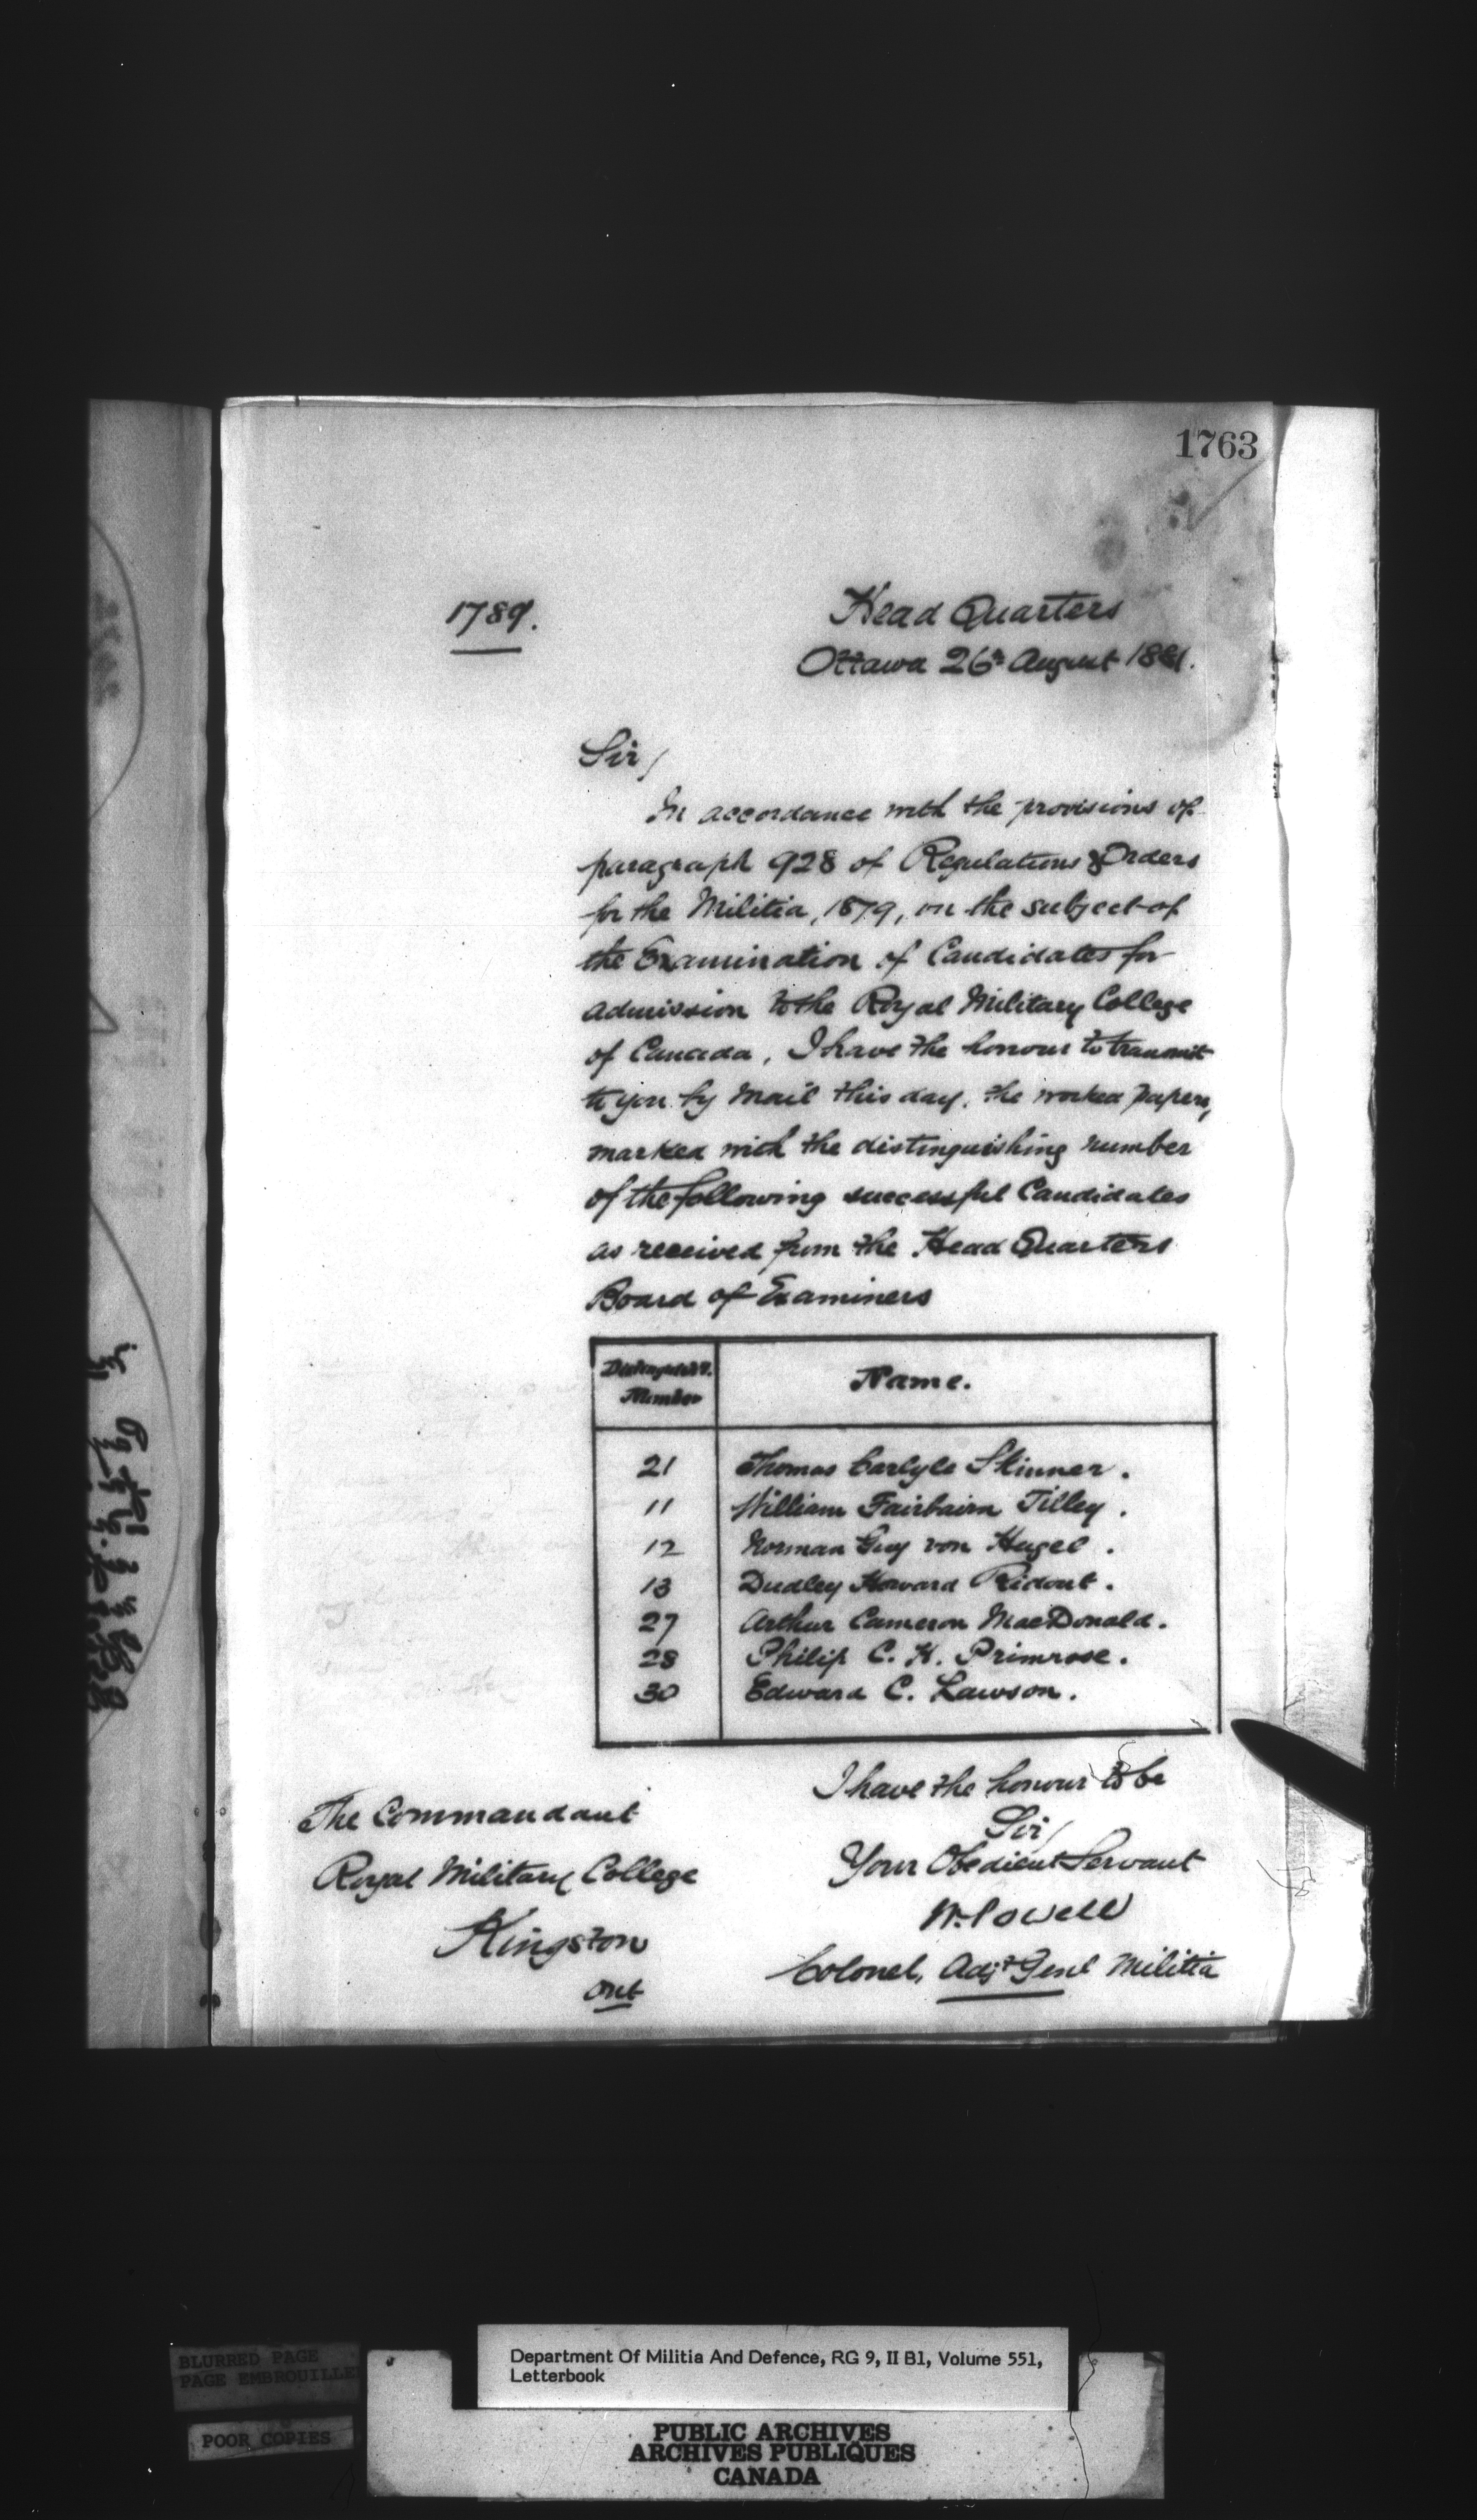 1763
1789.
Head Quarters
Ottawa 26th August 1881.
Sir/
In accordance with the provisions of
paragraph 928 of Regulations & Orders
for the Militia, 1879, on the subject of
the Examination of Candidates for
admission to the Royal Military College
of Canada, I have the honour to transmit
to you by Mail this day, the worked papers,
marked with the distinguishing number
of the following successful Candidates
as received from the Head Quarters
Board of Examiners
Number
Name.
21 Thomas Carlyle Skinner.
11 William Fairbairn Tilley.
12 Norman Guy von Hugel.
13 Dudley Howard Ridout.
27 Arthur Cameron MacDonald.
28 Philip C. H. Primrose.
30 Edward C. Lawson.
I have the honour to be
Sir/
Your Obedient Servant
W. Powell
Colonel, Adjt Genl Militia
The Commandant
Royal Military College
Kingston
Ont
Department Of Militia And Defence, RG 9, II B1, Volume 551,
Letterbook
BLURRED PAGE
PAGE EMBROUILLE
POOR COPIES
PUBLIC ARCHIVES
ARCHIVES PUBLIQUES
CANADA